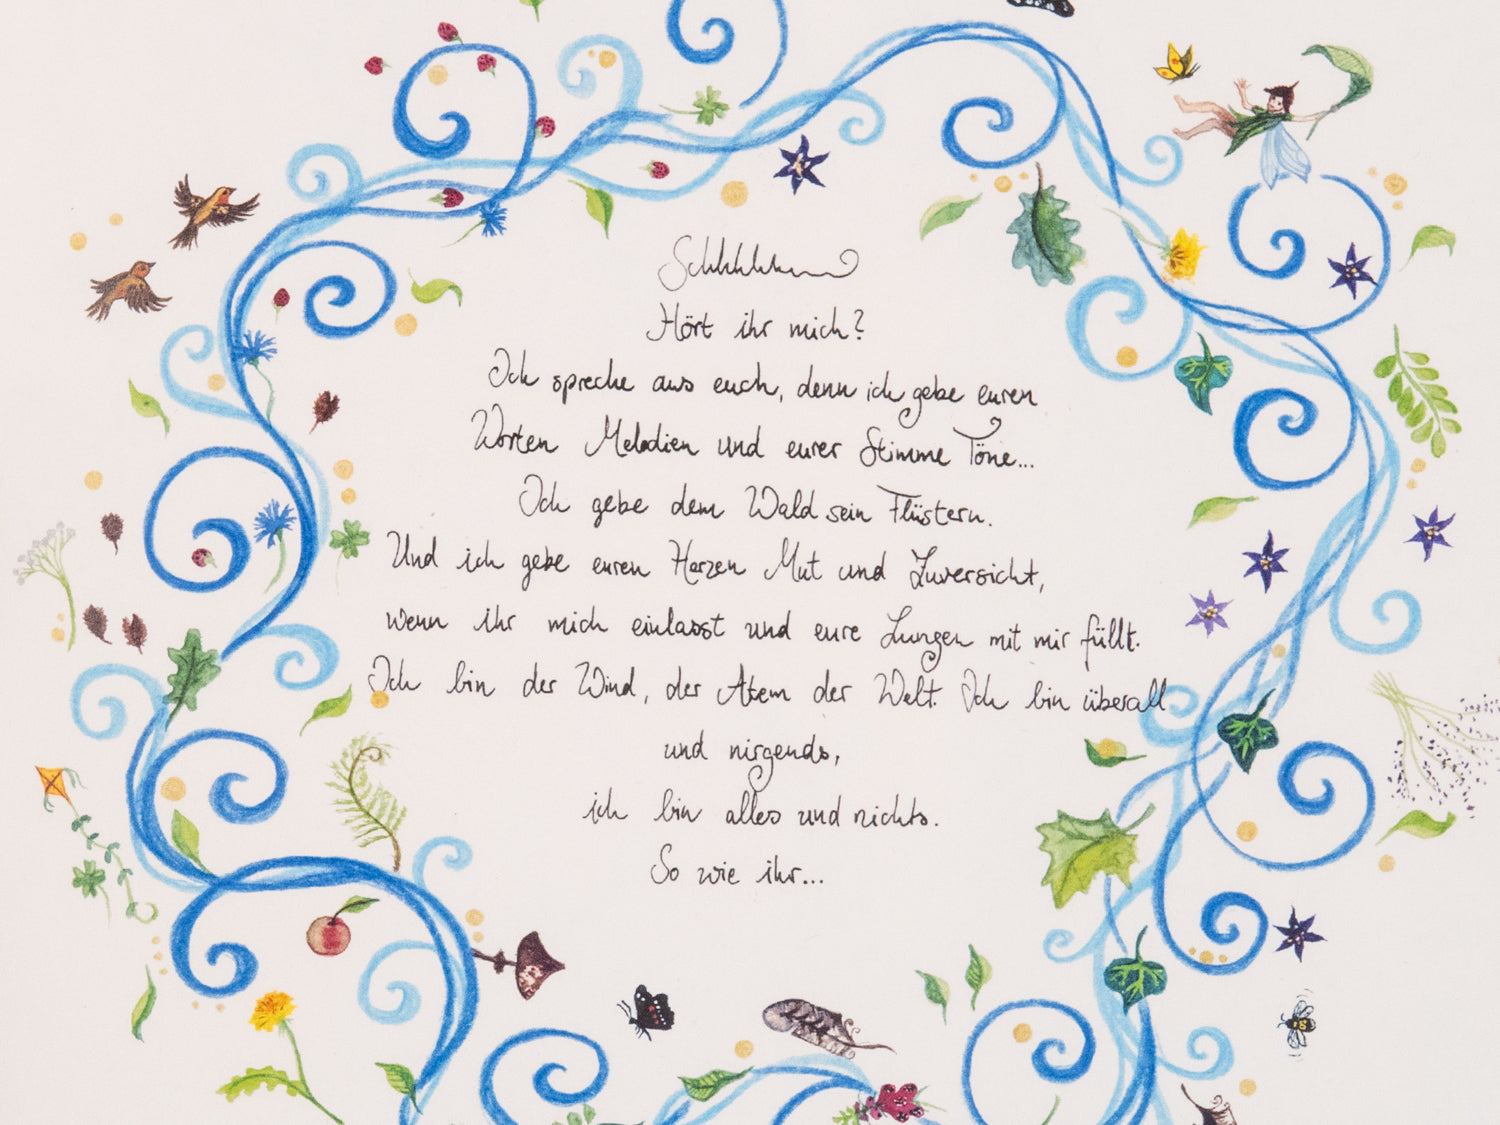 Schhhhhh
Hört ihr mich?
Ich spreche aus euch, denn ich gebe euren
Worten Melodien und eurer Stimme Töne...
Ich gebe dem Wald sein Flüstern.
Und ich gebe euren Herzen Mut und Zuversicht,
wenn ihr mich einlasst und eure Lungen mit mir füllt.
Ich bin der Wind, der Atem der Welt. Ich bin überall
und nirgends,
ich bin alles und nichts.
So wie ihr...